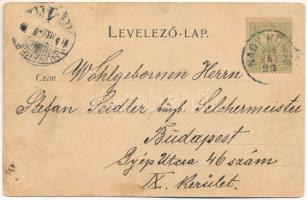 LEVELEZŐ-LAP.
Czim Wohlgebornen Herrn
Stefan Seidler bürgl. Selchermeister
Budapest
Gyép Utcza 46 szám
IX. Kerület.